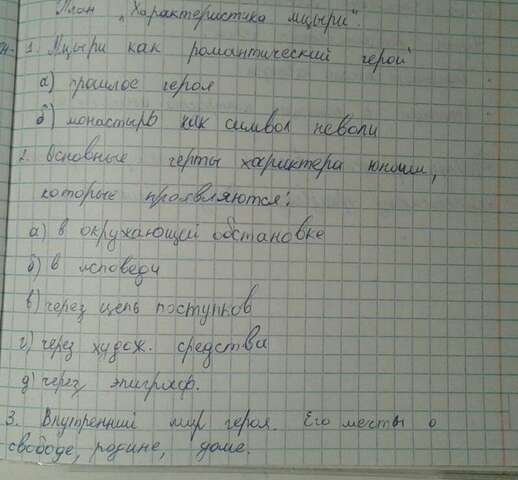 План "Характеристика мцыри".
1. Мцыри как романтический герой
а) прошлое героя
б) монастырь как символ неволи
2. Основные черты характера юноши,
которые проявляются:
а) в окружающей обстановке
б) в исповеди
в) через цепь поступков
г) через худож. средства
д) через эпиграф.
3. Внутренний мир героя. Его мечты о
свободе, родине, доме.